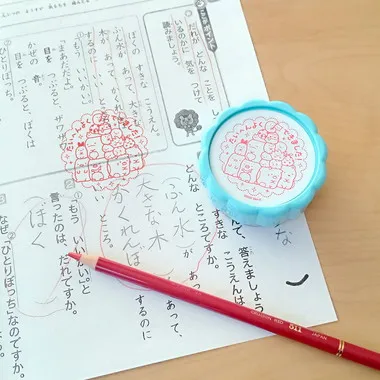 だれが どんな ことを し
ているのかに 気を つけて
読みましょう。
ぼくの すきな こうえん。
ふん水が あって、大
木が あって、
するのに いい
「もう いいかい」
「まあだだよ」
目を つぶると、ザワザワ
かぜの 音。
目を つぶると、ぼくは
ひとりぼっち。
んで、答えましょう
すきな こうえんは
どんな ところですか。
ふん水 が あって、
大きな木 が あって、
かくれんぼ するのに
いい ところ。
「もう いいかい」と
言ったのは、だれですか。
ぼく
なぜ「ひとりぼっち」なのですか。
たいへんよくできました
JAPAN